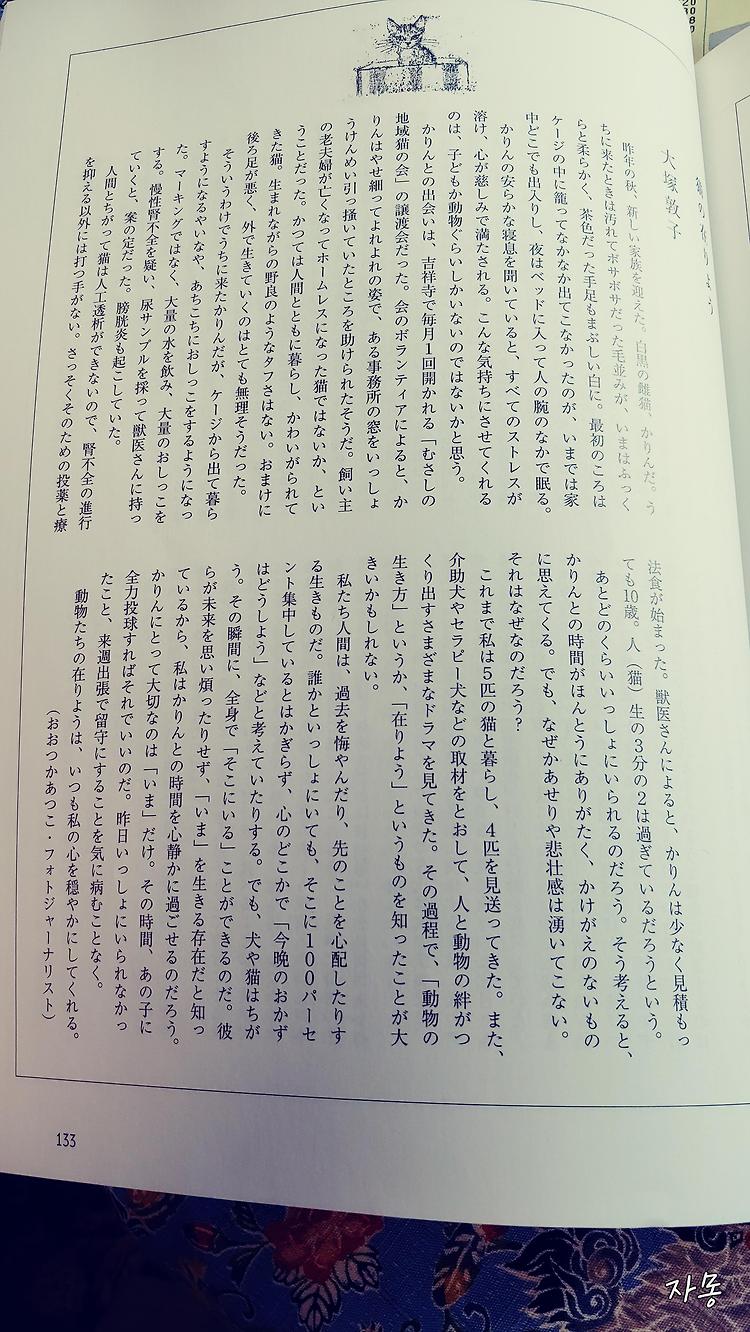 大塚敦子
昨年の秋、新しい家族を迎えた。白黒の雌猫、かりんだ。う
ちに来たときは汚れてボサボサだった毛並みが、いまはふっく
らと柔らかく、茶色だった手足もまぶしい白に。最初のころは
ケージの中に籠ってなかなか出てこなかったのが、いまでは家
中どこでも出入りし、夜はベッドに入って人の腕のなかで眠る。
かりんの安らかな寝息を聞いていると、すべてのストレスが
溶け、心が慈しみで満たされる。こんな気持ちにさせてくれる
のは、子どもか動物ぐらいしかいないのではないかと思う。
かりんとの出会いは、吉祥寺で毎月1回開かれる「むさしの
地域猫の会」の譲渡会だった。会のボランティアによると、か
りんはやせ細ってよれよれの姿で、ある事務所の窓をいっしょ
うけんめい引っ掻いていたところを助けられたそうだ。飼い主
の老夫婦が亡くなってホームレスになった猫ではないか、とい
うことだった。かつては人間とともに暮らし、かわいがられて
きた猫。生まれながらの野良のようなタフさはない。おまけに
後ろ足が悪く、外で生きていくのはとても無理そうだった。
そういうわけでうちに来たかりんだが、ケージから出て暮ら
すようになるやいなや、あちこちにおしっこをするようになっ
た。マーキングではなく、大量の水を飲み、大量のおしっこを
する。慢性腎不全を疑い、尿サンプルを採って獣医さんに持っ
ていくと、案の定だった。膀胱炎も起こしていた。
人間とちがって猫は人工透析ができないので、腎不全の進行
を抑える以外には打つ手がない。さっそくそのための投薬と療
法食が始まった。獣医さんによると、かりんは少なく見積もっ
ても10歳。人（猫）生の3分の2は過ぎているだろうという。
あとどのくらいいっしょにいられるのだろう。そう考えると、
かりんとの時間がほんとうにありがたく、かけがえのないもの
に思えてくる。でも、なぜかあせりや悲壮感は湧いてこない。
それはなぜなのだろう？
これまで私は5匹の猫と暮らし、4匹を見送ってきた。また、
介助犬やセラピー犬などの取材をとおして、人と動物の絆がつ
くり出すさまざまなドラマを見てきた。その過程で、「動物の
生き方」というか、「在りよう」というものを知ったことが大
きいかもしれない。
私たち人間は、過去を悔やんだり、先のことを心配したりす
る生きものだ。誰かといっしょにいても、そこに100パーセ
ント集中しているとはかぎらず、心のどこかで「今晩のおかず
はどうしよう」などと考えていたりする。でも、犬や猫はちが
う。その瞬間に、全身で「そこにいる」ことができるのだ。彼
らが未来を思い煩ったりせず、「いま」を生きる存在だと知っ
ているから、私はかりんとの時間を心静かに過ごせるのだろう。
かりんにとって大切なのは「いま」だけ。その時間、あの子に
全力投球すればそれでいいのだ。昨日いっしょにいられなかっ
たこと、来週出張で留守にすることを気に病むことなく。
動物たちの在りようは、いつも私の心を穏やかにしてくれる。
（おおつかあつこ・フォトジャーナリスト）
133
자몽